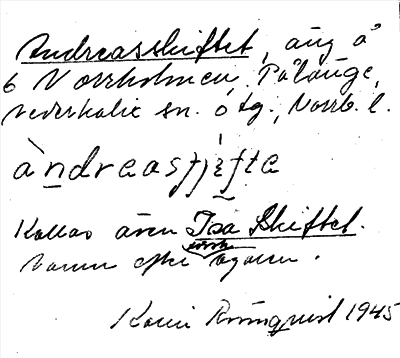 Andreasskiftet, äng å
6 Norrholmen, Pålänge,
Nederkalix sn. o tg., Norrb. l.
àndreasʃjɛfte
Kallas även Isa Skiftet.
Namn efter förste ägaren.
Karin Rönnqvist 1945